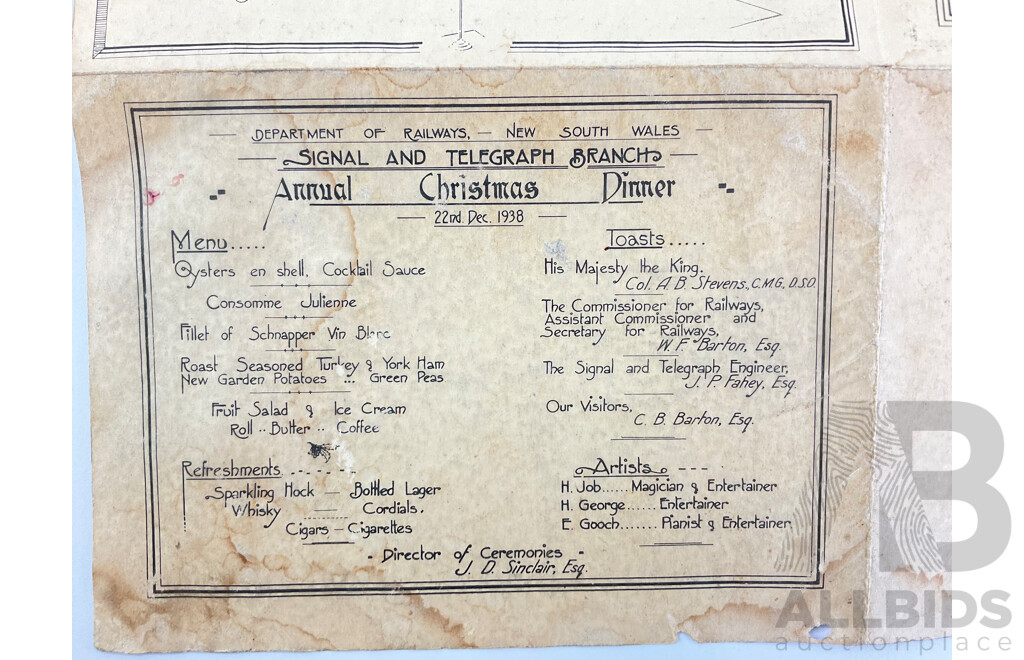 DEPARTMENT OF RAILWAYS, — NEW SOUTH WALES
SIGNAL AND TELEGRAPH BRANCH
Annual Christmas Dinner
22nd. Dec. 1938
Menu.....
Oysters en shell. Cocktail Sauce
Consomme Julienne
Fillet of Schnapper Vin Blanc
Roast Seasoned Turkey & York Ham
New Garden Potatoes ... Green Peas
Fruit Salad & Ice Cream
Roll .. Butter .. Coffee
Refreshments.....
Sparkling Hock — Bottled Lager
Whisky — Cordials.
Cigars — Cigarettes
Toasts.....
His Majesty the King.
Col. A B. Stevens., C.M.G., D.S.O.
The Commissioner for Railways,
Assistant Commissioner and
Secretary for Railways,
W. F. Barton, Esq.
The Signal and Telegraph Engineer,
J. P. Fahey, Esq.
Our Visitors,
C. B. Barton, Esq.
Artists ---
H. Job...... Magician & Entertainer
H. George...... Entertainer
E. Gooch....... Pianist & Entertainer
- Director of Ceremonies -
J. D. Sinclair, Esq.
B
ALLBIDS
auctionplace